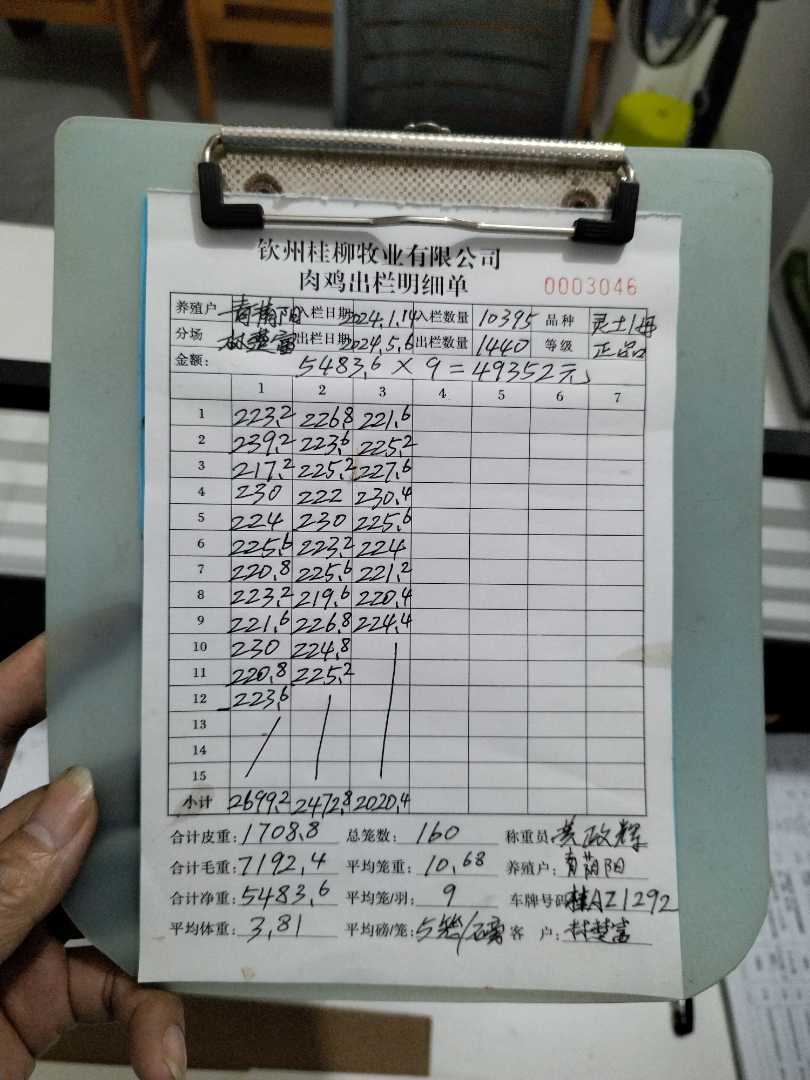 钦州桂柳牧业有限公司
肉鸡出栏明细单 0003046
养殖户 入栏日期 2024.1.14 入栏数量 10395 品种 灵土1母
分场 林楚富 出栏日期 2024.5.6 出栏数量 1440 等级 正品
金额: 5483.6 × 9 = 49352元
1 2 3 4 5 6 7
1 223.2 226.8 221.6
2 239.2 223.6 225.2
3 217.2 225.2 227.6
4 230 222 230.4
5 224 230 225.6
6 225.6 223.2 224
7 220.8 225.6 221.2
8 223.2 219.6 220.4
9 221.6 226.8 224.4
10 230 224.8
11 220.8 225.2
12 223.6
13
14
15
小计 2699.2 2472.8 2020.4
合计皮重: 1708.8 总笼数: 160 称重员 黄政辉
合计毛重: 7192.4 平均笼重: 10.68 养殖户:
合计净重: 5483.6 平均笼/羽: 9 车牌号码 桂AZ1292
平均体重: 3.81 平均磅/笼: 5笼/磅 客 户: 林楚富